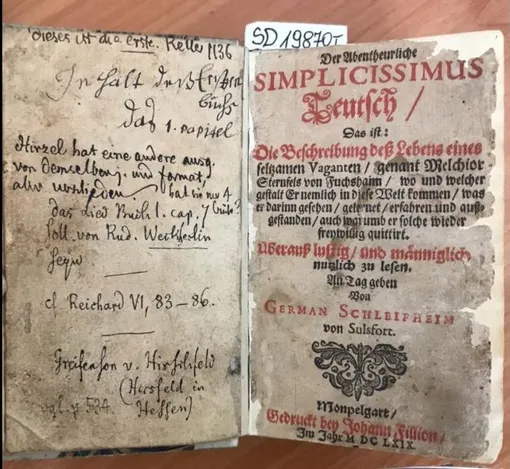 dieses ist die erste. Keller 1136
Inhalt deß Ersten
buchs
das 1. capitel
Hirzel hat eine andere ausg.
von demselben j. und format,
aber verschieden. hat die nur
das lied Buch 1. cap. 7
soll von Rud. Weckherlin
seyn
cf Reichard VI, 83–86.
Greifenson v. Hirschfeld
(Hersfeld in
vgl. p 584. Hessen)
SD 19870
Der Abentheurliche
SIMPLICISSIMUS
Teutsch /
Das ist:
Die Beschreibung deß Lebens eines
seltzamen Vaganten / genant Melchior
Sternfels von Fuchshaim / wo und welcher
gestalt Er nemlich in diese Welt kommen / was
er darinn gesehen / gelernet / erfahren und auß-
gestanden / auch warumb er solche wieder
freywillig quittirt.
Uberauß lustig / und männiglich
nutzlich zu lesen.
An Tag geben
Von
GERMAN SCHLEIFHEIM
von Sulsfort.
Monpelgart /
Gedruckt bey Johann Fillion /
Im Jahr M DC LXIX.